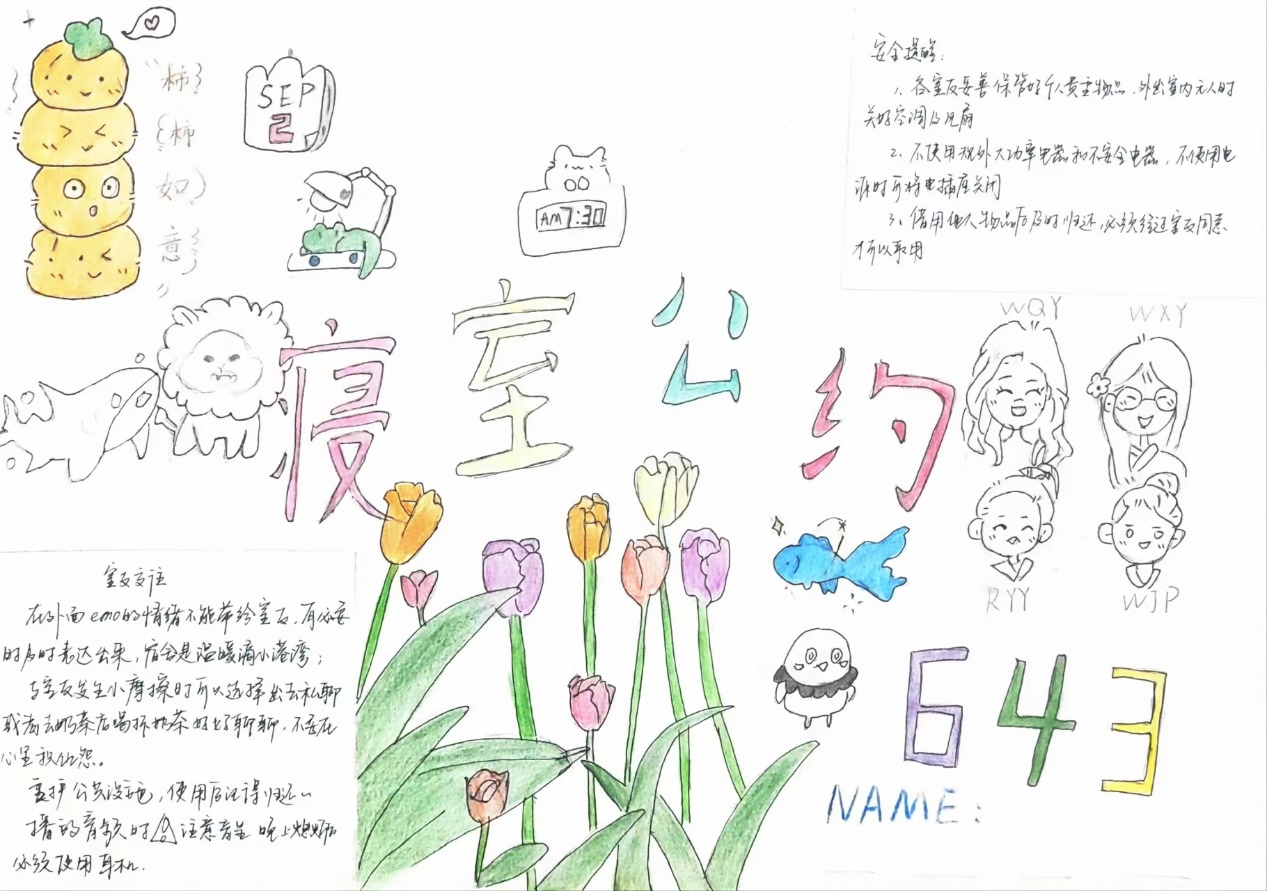 "柿
柿
如
意"
SEP
2
AM 7:30
安全提醒:
1、各室友妥善保管好个人贵重物品,外出室内无人时
关好空调及风扇
2、不使用规外大功率电器和不安全电器,不使用电
源时可将电插座关闭
3、借用他人物品后及时归还,必须经过室友同意
才可以取用
寝室公约
WQY
WXY
RYY
WJP
室友交往
在外面emo的情绪不能带给室友,有必要
时及时表达出来,宿舍是温暖滴小港湾;
与室友发生小摩擦时可以选择出去私聊
或者去奶茶店喝杯奶茶好好聊聊,不要在
心里积仇怨。
爱护公共设施,使用后记得归还~
播放音频时 注意音量 晚上熄灯后
必须使用耳机.
643
NAME: